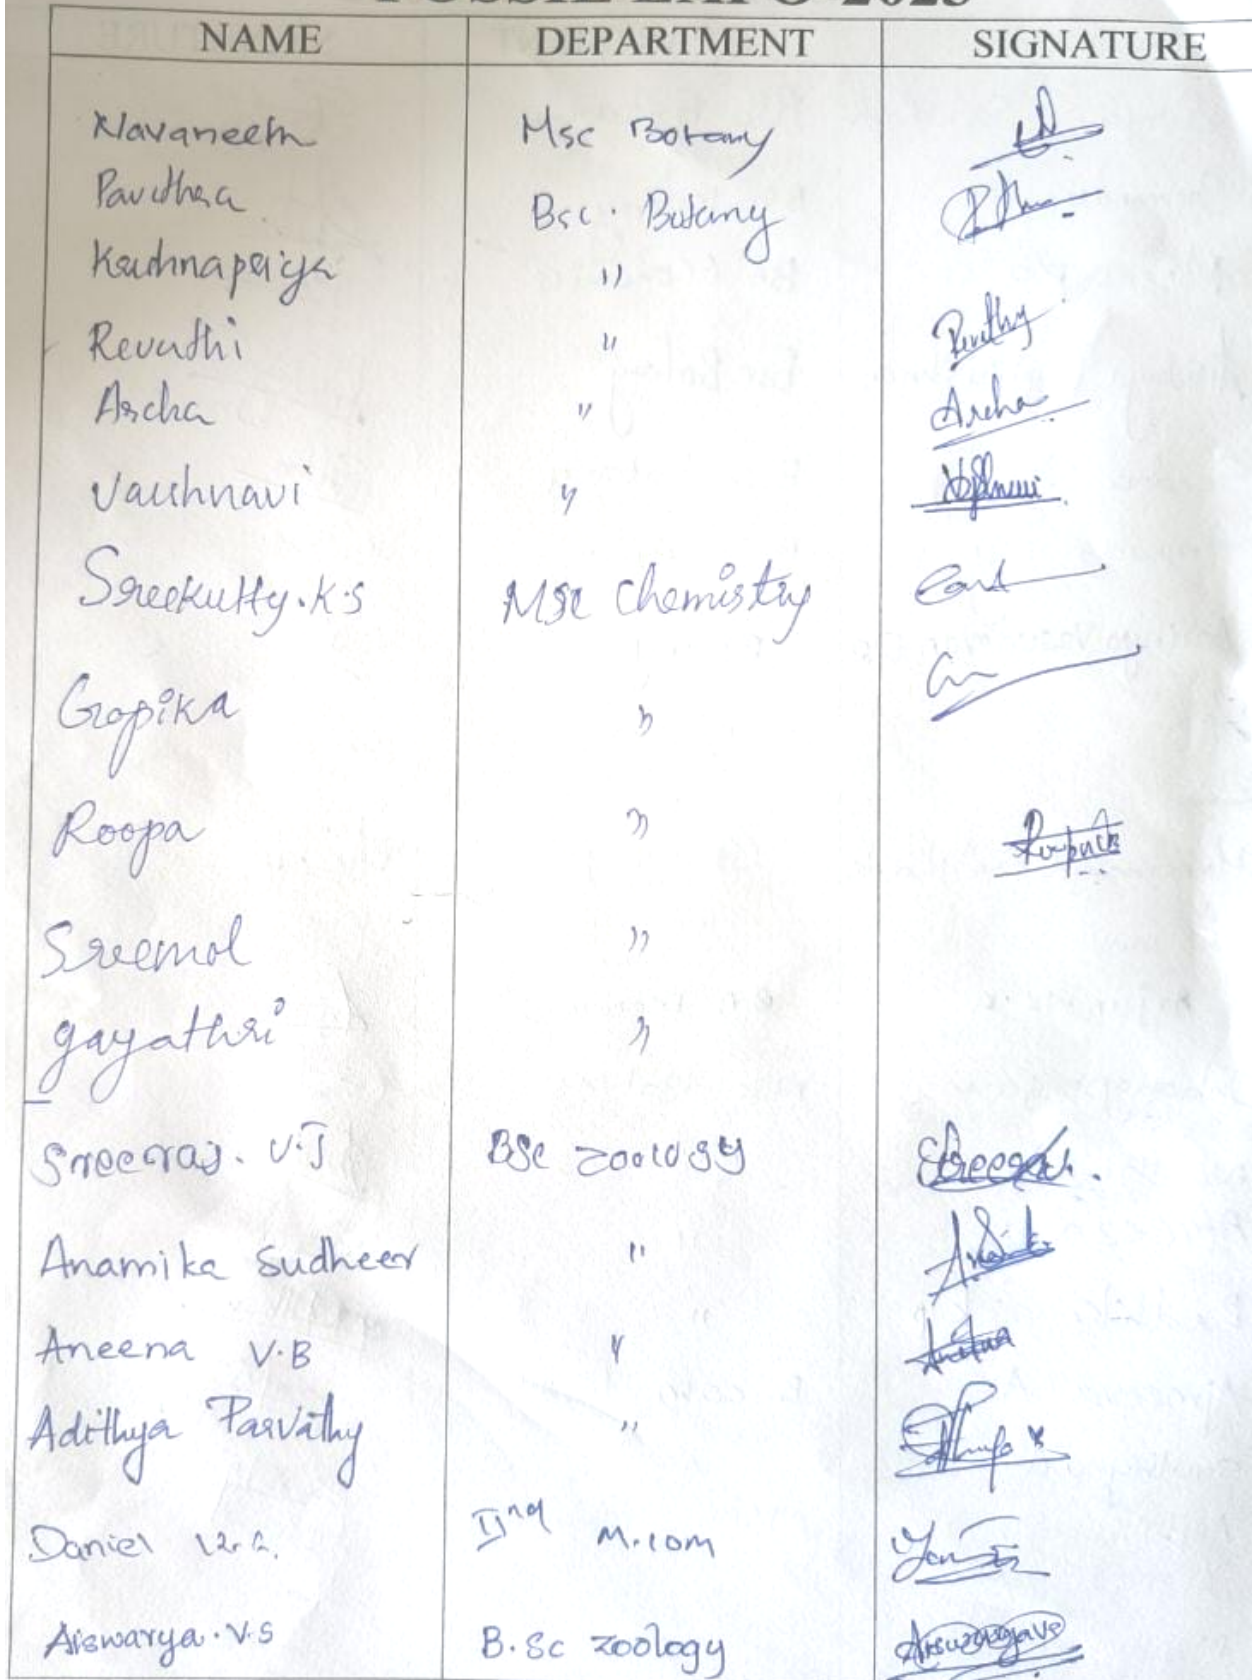 FOSSIL EXPO 2023
NAME DEPARTMENT SIGNATURE
Navaneeth Msc Botany
Pavithra Bsc. Botany
Krishnapriya "
Revathi " Revathy
Archa " Archa
Vaishnavi "
Sreekutty.K.S MSc Chemistry
Gopika "
Roopa "
Sreemol "
gayathri "
Sreeraj. V.J BSc zoology Sreeraj.
Anamika Sudheer "
Aneena V.B "
Adithya Parvathy "
Daniel IInd M.com
Aiswarya.V.S B.Sc zoology Aiswaryavs